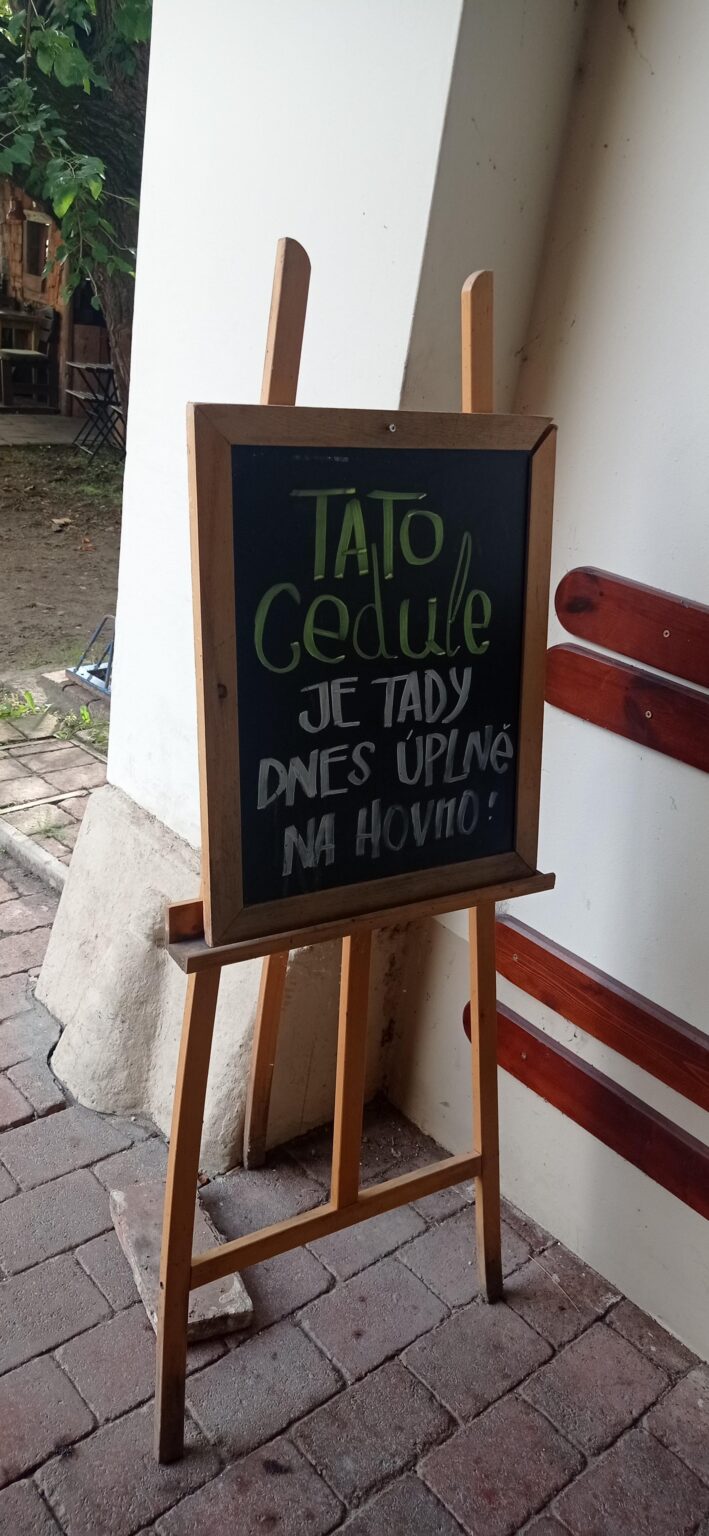 TATO
Cedule
JE TADY
DNES ÚPLNĚ
NA HOVNO!